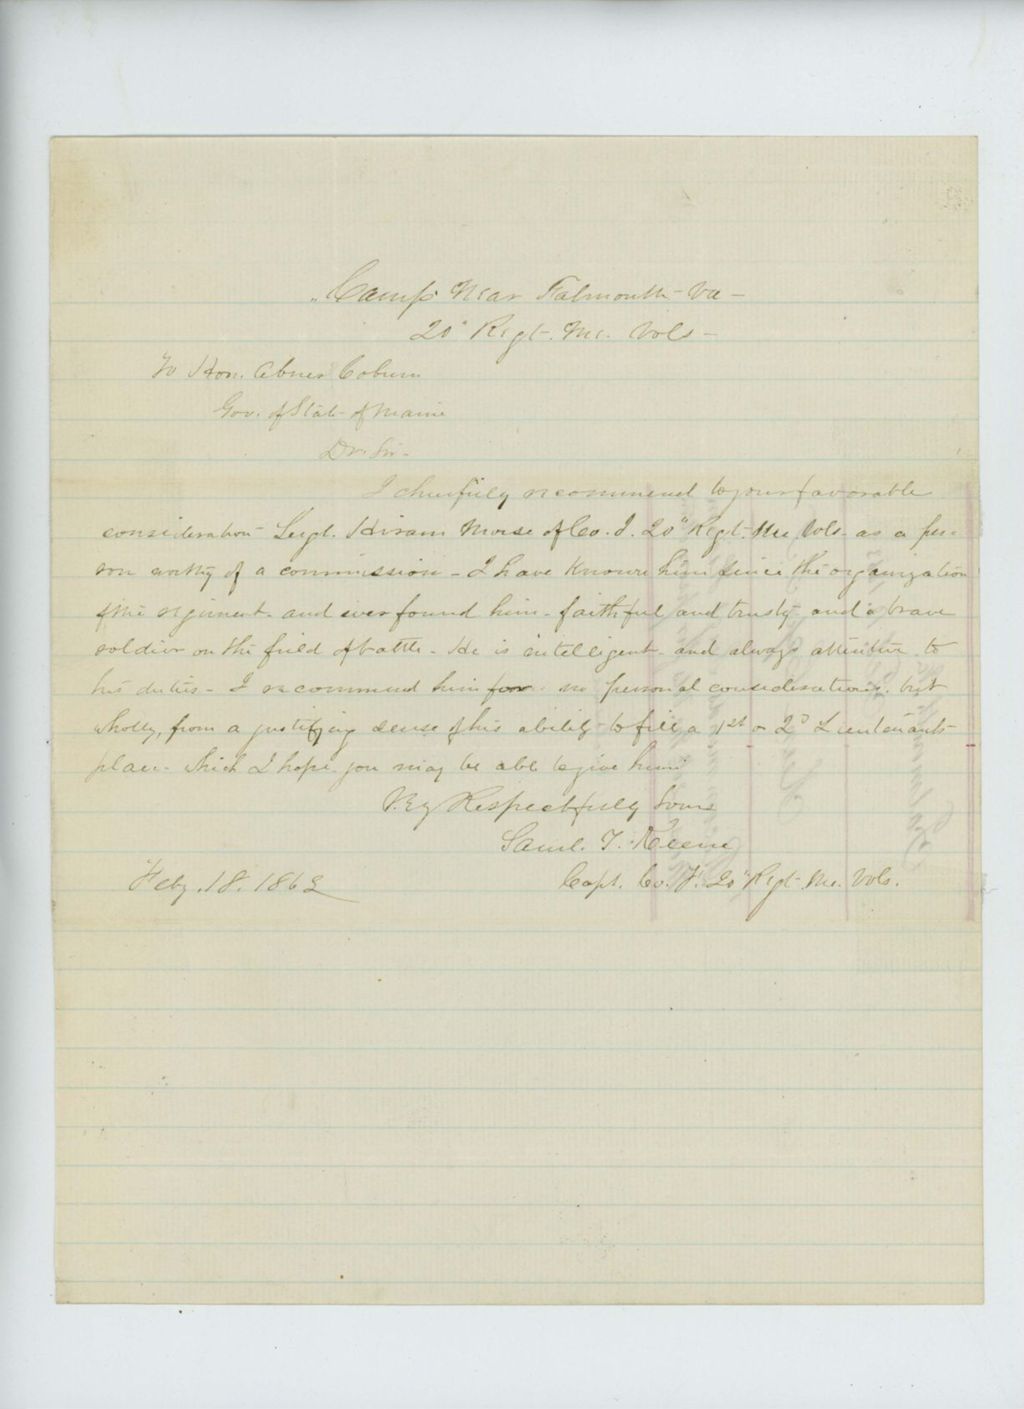 Camp Near Falmouth - Va -
20" Regt. Me. Vols -
To Hon. Abner Coburn
Gov. of State of Maine
Dr. Sir -
I cheerfully recommend to your favorable
consideration Sergt. Hiram Morse of Co. I. 20" Regt. Me Vols as a per-
son worthy of a commission - I have known him since the organization
of the regiment and ever found him - faithful and trusty and a brave
soldier on the field of battle - He is intelligent and always attentive to
his duties - I recommend him for no personal considerations but
wholly, from a justifying sense of his ability to fill a 1st or 2D Lieutenants
place - Which I hope you may be able to give him
Very Respectfully Yours
Saml. T. Keene
Feby. 18. 1863 Capt. Co. F. 20" Regt Me. Vols.